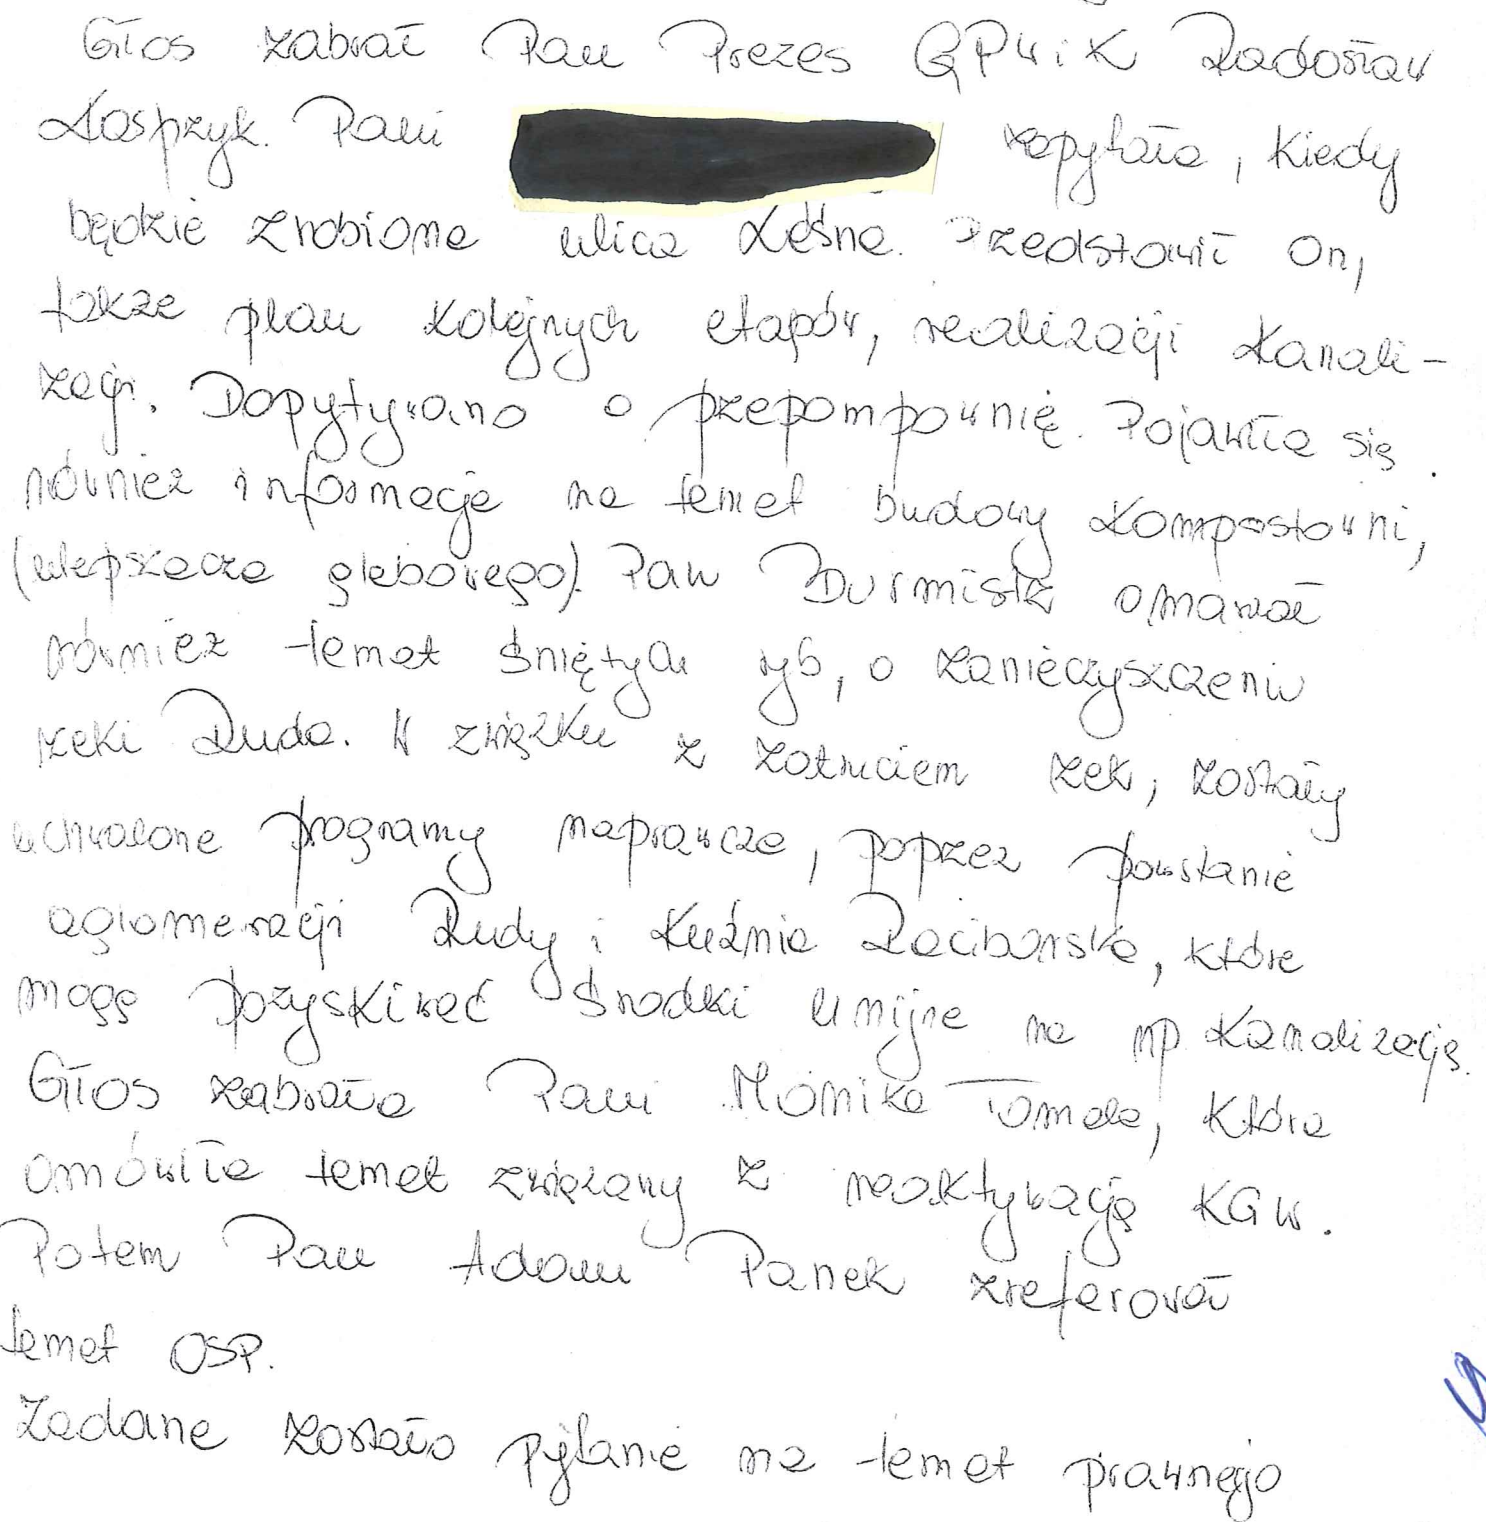 Głos zabrał Pan Prezes GPWiK Radosław
Kasprzyk. Pani zapytała, kiedy
będzie zrobiona ulica Leśna. Przedstawił on,
także plan kolejnych etapów, realizacji kanali-
zacji. Dopytywano o przepompownię. Pojawiła się
również informacja na temat budowy kompostowni,
(ulepszacza glebowego). Pan Burmistrz omawiał
również temat śniętych ryb, o zanieczyszczeniu
rzeki Ruda. W związku z zatruciem rzek, zostały
uchwalone programy naprawcze, poprzez powstanie
aglomeracji Rudy i Kuźnia Raciborska, które
mogą pozyskiwać środki unijne na np. kanalizację.
Głos zabrała Pani Monika, która
omówiła temat związany z reaktywacją KGW.
Potem Pan Adam Panek zreferował
temat OSP.
Zadane zostało pytanie na temat prawnego